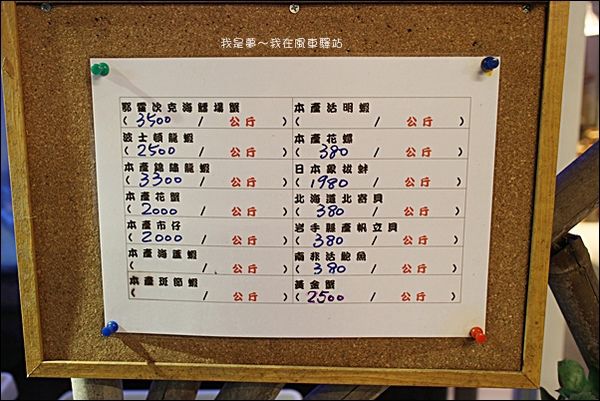 我是夢～我在風車驛站
鄂霍次克海鱈場蟹
( 3500 / 公斤 )
波士頓龍蝦
( 2500 / 公斤 )
本產錦繡龍蝦
( 3300 / 公斤 )
本產花蟹
( 2000 / 公斤 )
本產市仔
( 2000 / 公斤 )
本產海蘆蝦
( / 公斤 )
本產斑節蝦
( / 公斤 )
本產活明蝦
( / 公斤 )
本產花螺
( 380 / 公斤 )
日本象拔蚌
( 1980 / 公斤 )
北海道北寄貝
( 380 / 公斤 )
岩手縣產帆立貝
( 380 / 公斤 )
南非活鮑魚
( 380 / 公斤 )
黃金蟹
( 2500 / 公斤 )